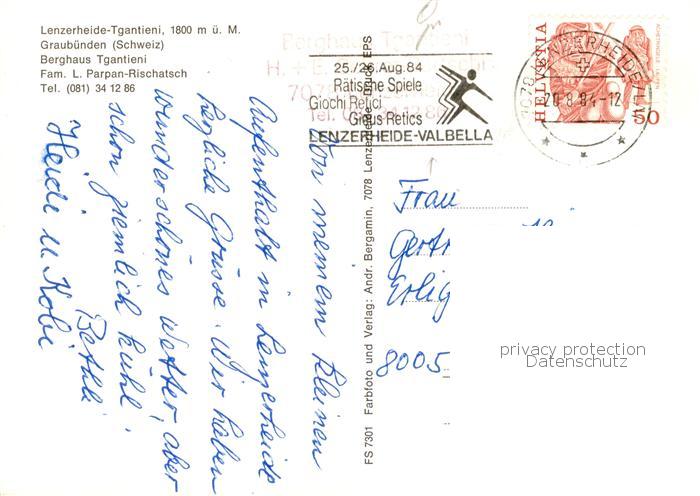 Lenzerheide-Tgantieni, 1800 m ü. M.
Graubünden (Schweiz)
Berghaus Tgantieni
Fam. L. Parpan-Rischatsch
Tel. (081) 34 12 86
Berghaus Tgantieni
25./26. Aug. 84
Rätische Spiele
Giochi Retici
Gieus Retics
LENZERHEIDE-VALBELLA
7078 LENZERHEIDE/LAI
20.8.84-12
HELVETIA
50
FS 7301 Farbfoto und Verlag: Andr. Bergamin, 7078 Lenzerheide Druck EPS
Von meinem kleinen
Aufenthalt in Lenzerheide
herzliche Grüsse. Wir haben
wunderschönes Wetter, aber
schon ziemlich kühl!
Bethli
Heidi u. Kobi
Frau
Gertr
Erlig
8005
privacy protection
Datenschutz